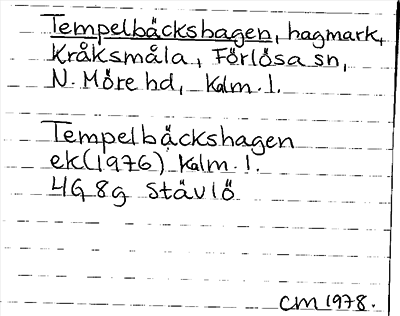 Tempelbäckshagen, hagmark,
Kråksmåla, Förlösa sn,
N. Möre hd, Kalm. l.
Tempelbäckshagen
ek (1976) Kalm. l.
4G 8g Stävlö
CM 1978.